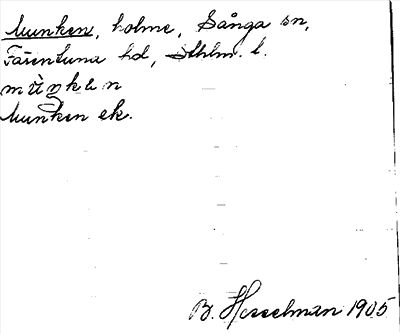 Munken, holme, Sånga sn,
Färentuna hd, Sthlm. l.
mùŋkɛn
Munken ek.
B. Hesselman 1905